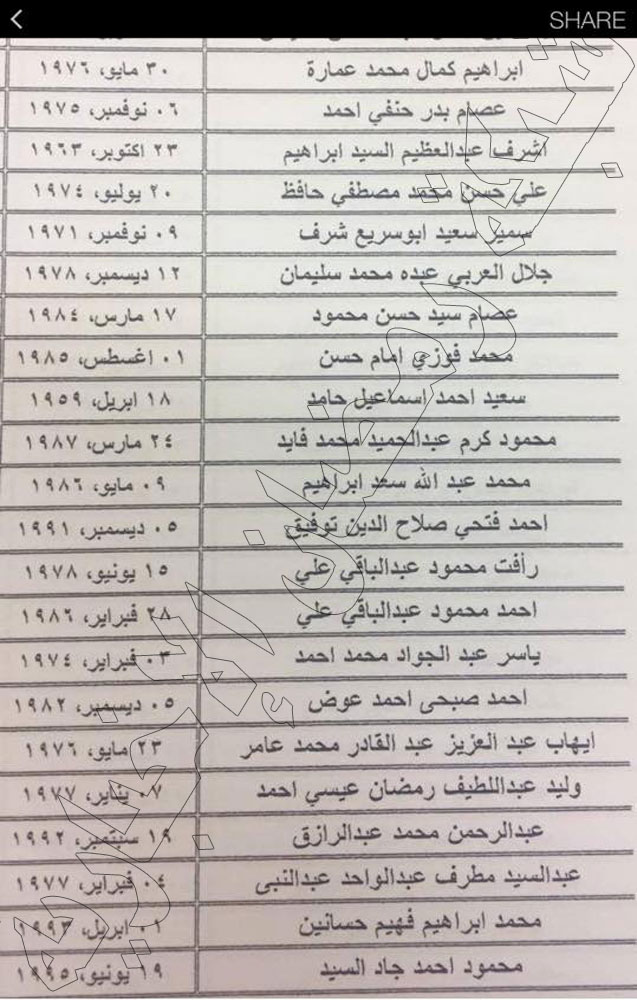 SHARE
ابراهيم كمال محمد عمارة ٣٠ مايو، ١٩٧٦
عصام بدر حنفي احمد ٠٦ نوفمبر، ١٩٧٥
اشرف عبدالعظيم السيد ابراهيم ٢٣ اكتوبر، ١٩٦٣
علي حسن محمد مصطفي حافظ ٢٠ يوليو، ١٩٧٤
سمير سعيد ابوسريع شرف ٠٩ نوفمبر، ١٩٧١
جلال العربي عبده محمد سليمان ١٢ ديسمبر، ١٩٧٨
عصام سيد حسن محمود ١٧ مارس، ١٩٨٤
محمد فوزي امام حسن ٠١ اغسطس، ١٩٨٥
سعيد احمد اسماعيل حامد ١٨ ابريل، ١٩٥٩
محمود كرم عبدالحميد محمد فايد ٢٤ مارس، ١٩٨٧
محمد عبد الله سعد ابراهيم ٠٩ مايو، ١٩٨٦
احمد فتحي صلاح الدين توفيق ٠٥ ديسمبر، ١٩٩١
رأفت محمود عبدالباقي علي ١٥ يونيو، ١٩٧٨
احمد محمود عبدالباقي علي ٢٨ فبراير، ١٩٨٦
ياسر عبد الجواد محمد احمد ٠٣ فبراير، ١٩٧٤
احمد صبحى احمد عوض ٠٥ ديسمبر، ١٩٨٢
ايهاب عبد العزيز عبد القادر محمد عامر ٢٣ مايو، ١٩٧٦
وليد عبداللطيف رمضان عيسي احمد ٠٧ يناير، ١٩٧٧
عبدالرحمن محمد عبدالرازق ١٩ سبتمبر، ١٩٩٢
عبدالسيد مطرف عبدالواحد عبدالنبى ٠٤ فبراير، ١٩٧٧
محمد ابراهيم فهيم حسانين ٠١ ابريل، ١٩٩٣
محمود احمد جاد السيد ١٩ يونيو، ١٩٩٥